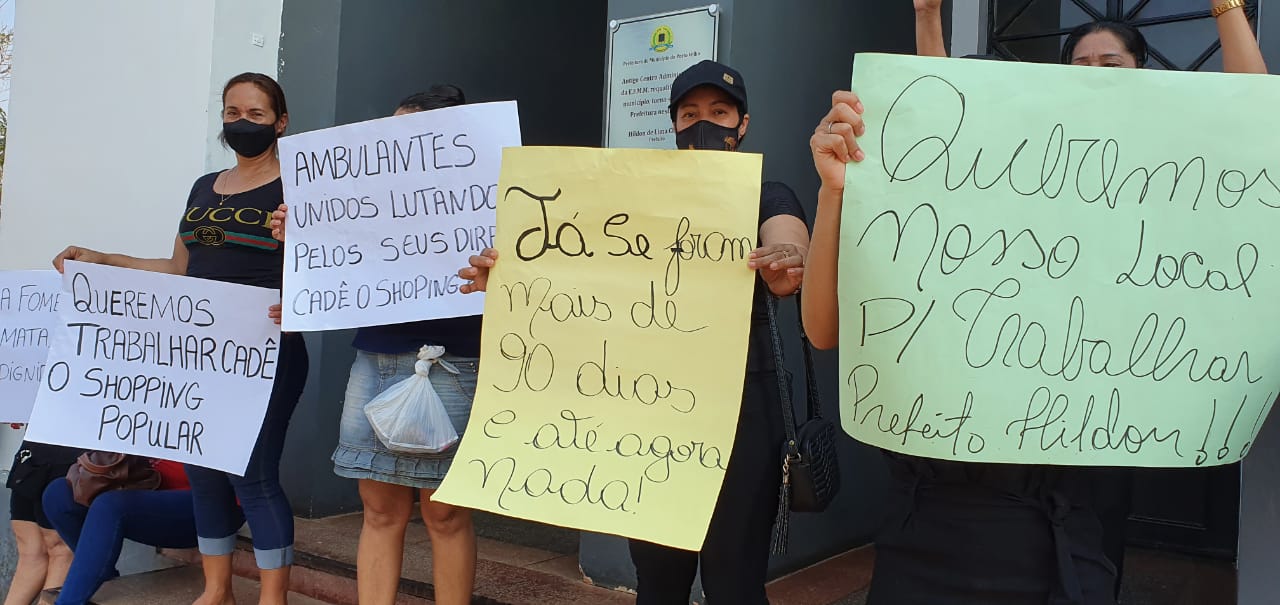 A FOME
MATA
DIGNI
QUEREMOS
TRABALHAR CADÊ
O SHOPPING
POPULAR
GUCCI
AMBULANTES
UNIDOS LUTANDO
PELOS SEUS DIRE
CADÊ O SHOPING
Já Se foram
mais de
90 dias
e até agora
Nada!
Prefeitura do Município de Porto Velho
Antigo Centro Admini
da E.F.M.M. requali
município, torna-
Prefeitura nes
Hildon de Lima C
Prefeito
Queremos
Nosso Local
P/ Trabalhar
Prefeito Hildon!!!